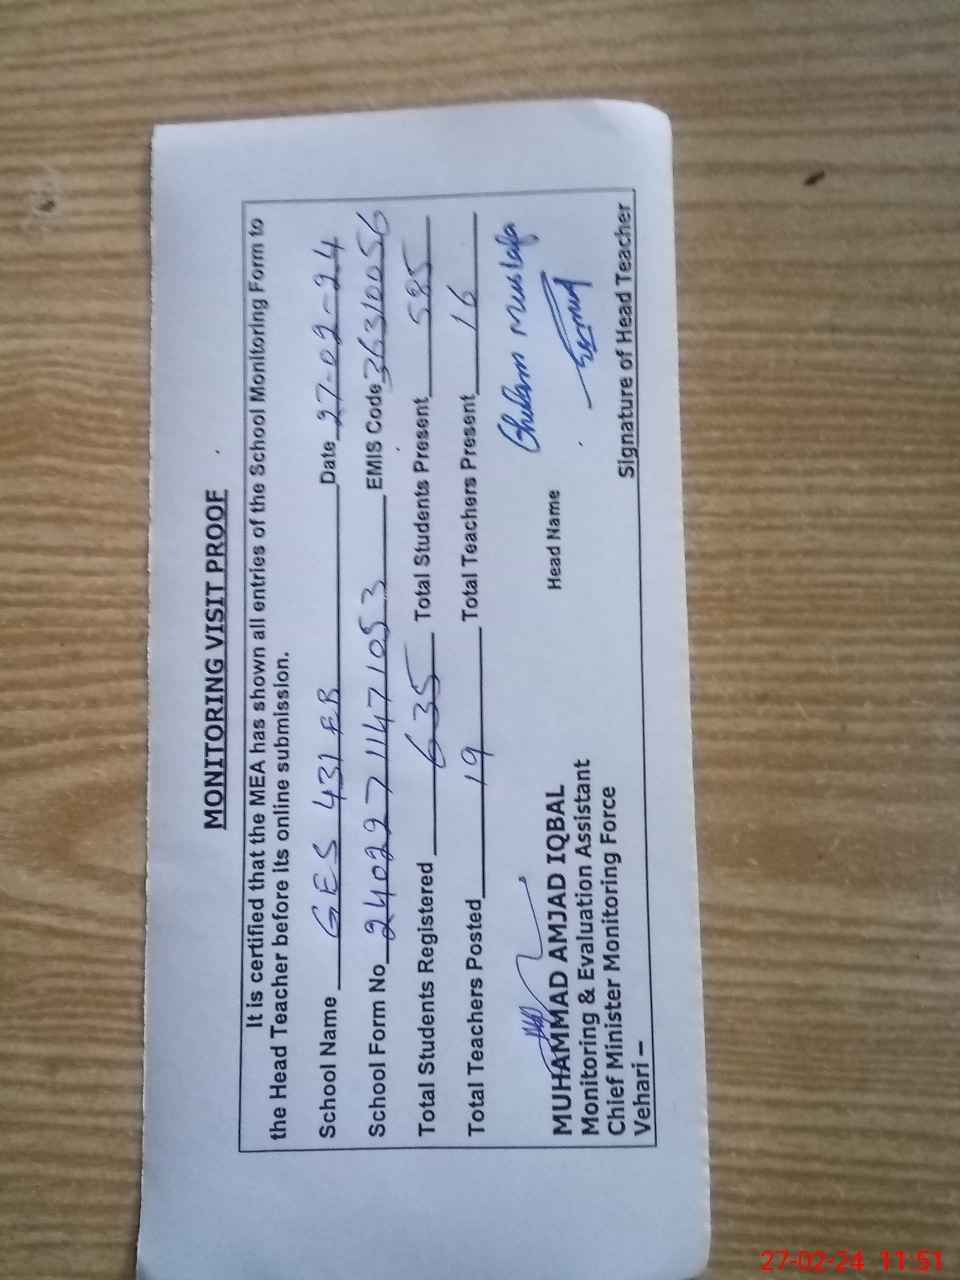 MONITORING VISIT PROOF
It is certified that the MEA has shown all entries of the School Monitoring Form to
the Head Teacher before its online submission.
School Name GES 431 EB Date 27-02-24
School Form No 240227 1147 1053 EMIS Code 36310056
Total Students Registered 635 Total Students Present 585
Total Teachers Posted 19 Total Teachers Present 16
Ghulam Mustafa
MUHAMMAD AMJAD IQBAL Head Name
Monitoring & Evaluation Assistant
Chief Minister Monitoring Force
Vehari – Signature of Head Teacher
27-02-24 11:51